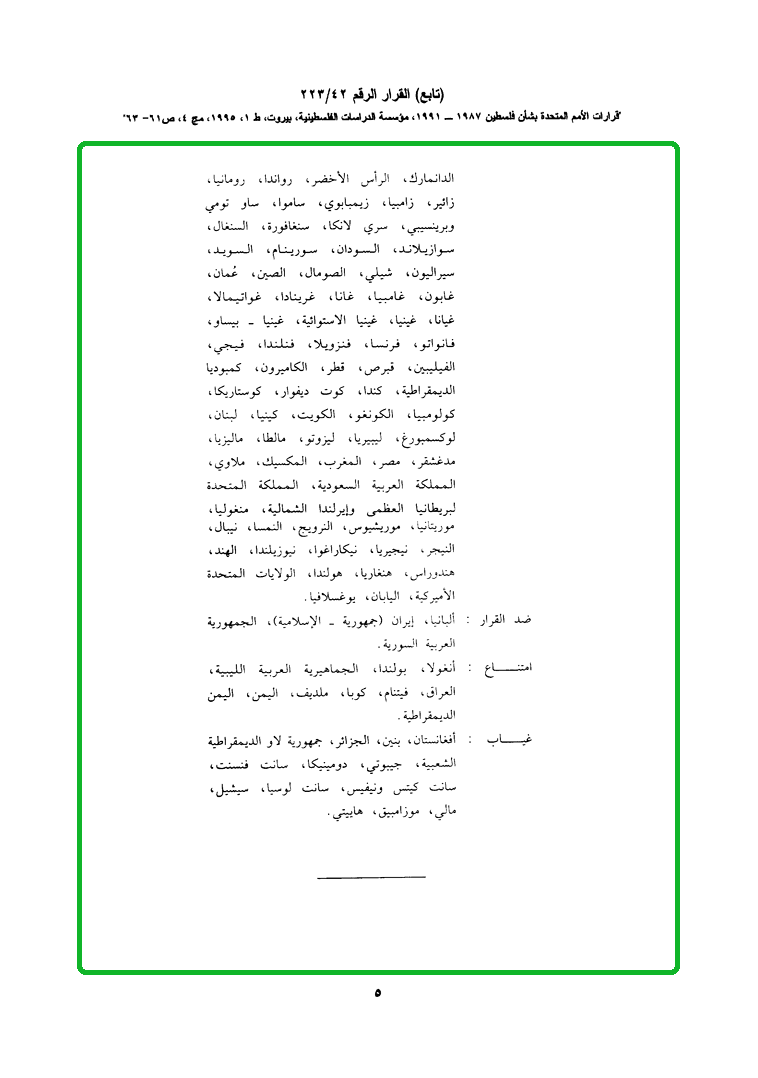 (تابع) القرار الرقم ٢٢٣/٤٢
"قرارات الأمم المتحدة بشأن فلسطين ١٩٨٧ ــ ١٩٩١، مؤسسة الدراسات الفلسطينية، بيروت، ط ١، ١٩٩٥، مج ٤، ص٦١- ٦٣"
الدانمارك، الرأس الأخضر، رواندا، رومانيا،
زائير، زامبيا، زيمبابوي، ساموا، ساو تومي
وبرينسيبي، سري لانكا، سنغافورة، السنغال،
سوازيلاند، السودان، سورينام، السويد،
سيراليون، شيلي، الصومال، الصين، عُمان،
غابون، غامبيا، غانا، غرينادا، غواتيمالا،
غيانا، غينيا، غينيا الاستوائية، غينيا ـ بيساو،
فانواتو، فرنسا، فنزويلا، فنلندا، فيجي،
الفيليبين، قبرص، قطر، الكاميرون، كمبوديا
الديمقراطية، كندا، كوت ديفوار، كوستاريكا،
كولومبيا، الكونغو، الكويت، كينيا، لبنان،
لوكسمبورغ، ليبيريا، ليزوتو، مالطا، ماليزيا،
مدغشقر، مصر، المغرب، المكسيك، ملاوي،
المملكة العربية السعودية، المملكة المتحدة
لبريطانيا العظمى وإيرلندا الشمالية، منغوليا،
موريتانيا، موريشيوس، النرويج، النمسا، نيبال،
النيجر، نيجيريا، نيكاراغوا، نيوزيلندا، الهند،
هندوراس، هنغاريا، هولندا، الولايات المتحدة
الأميركية، اليابان، يوغسلافيا.
ضد القرار : ألبانيا، إيران (جمهورية ـ الإسلامية)، الجمهورية
العربية السورية.
امتنـــــاع : أنغولا، بولندا، الجماهيرية العربية الليبية،
العراق، فيتنام، كوبا، ملديف، اليمن، اليمن
الديمقراطية.
غيـــــاب : أفغانستان، بنين، الجزائر، جمهورية لاو الديمقراطية
الشعبية، جيبوتي، دومينيكا، سانت فنسنت،
سانت كيتس ونيفيس، سانت لوسيا، سيشيل،
مالي، موزامبيق، هاييتي.
٥